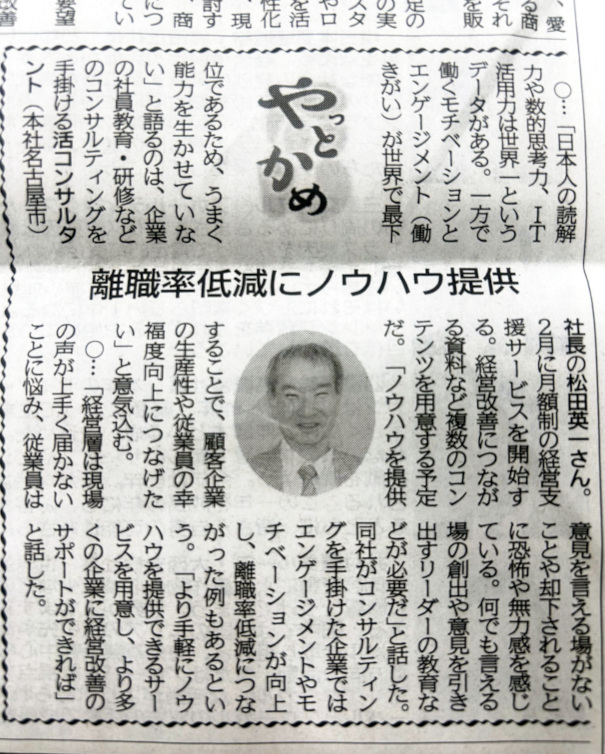 ○…「日本人の読解
力や数的思考力、IT
活用力は世界一という
データがある。一方で
働くモチベーションと
エンゲージメント（働
きがい）が世界で最下
やっとかめ
位であるため、うまく
能力を生かせていな
い」と語るのは、企業
の社員教育・研修など
のコンサルティングを
手掛ける活コンサルタ
ント（本社名古屋市）
離職率低減にノウハウ提供
社長の松田英一さん。
2月に月額制の経営支
援サービスを開始す
る。経営改善につなが
る資料など複数のコン
テンツを用意する予定
だ。「ノウハウを提供
することで、顧客企業
の生産性や従業員の幸
福度向上につなげた
い」と意気込む。
○…「経営層は現場
の声が上手く届かない
ことに悩み、従業員は
意見を言える場がない
ことや却下されること
に恐怖や無力感を感じ
ている。何でも言える
場の創出や意見を引き
出すリーダーの教育な
どが必要だ」と話した。
同社がコンサルティン
グを手掛けた企業では
エンゲージメントやモ
チベーションが向上
し、離職率低減につな
がった例もあるとい
う。「より手軽にノウ
ハウを提供できるサー
ビスを用意し、より多
くの企業に経営改善の
サポートができれば」
と話した。